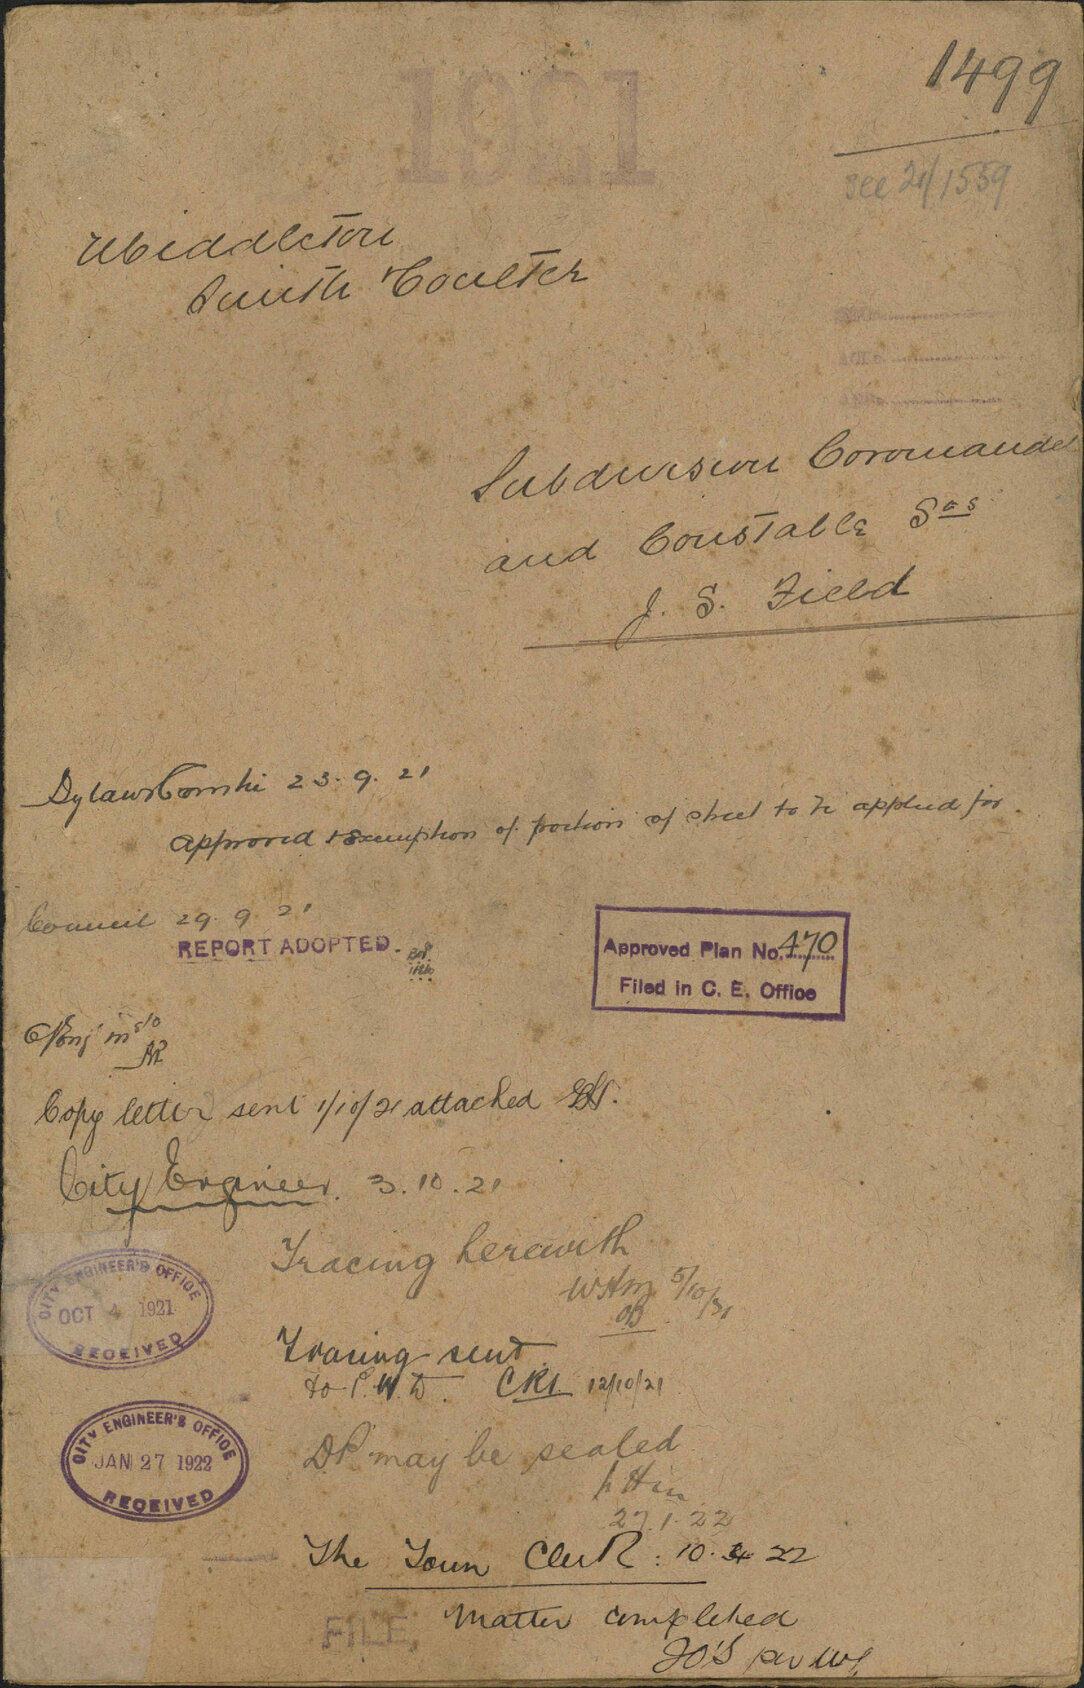 1921
1499
see 21/1559
Middleton
Smith & Coulter
Subdivision Coromandel
and Constable Sts
J. S. Field
Bylaws Comtee 23.9.21
Approved & exemption of portion of street to be applied for
Council 29 9 21
REPORT ADOPTED.
Approved Plan No. 470
Filed in C. E. Office
Copy letter sent 1/10/21 attached
City Engineer. 3.10.21
CITY ENGINEER'S OFFICE
OCT 4 1921
RECEIVED
Tracing herewith
5/10/21
Tracing sent
to P.W.D. 12/10/21
CITY ENGINEER'S OFFICE
JAN 27 1922
RECEIVED
DP may be sealed
27.1.22
The Town Clerk: 10.4.22
Matter completed
FILE